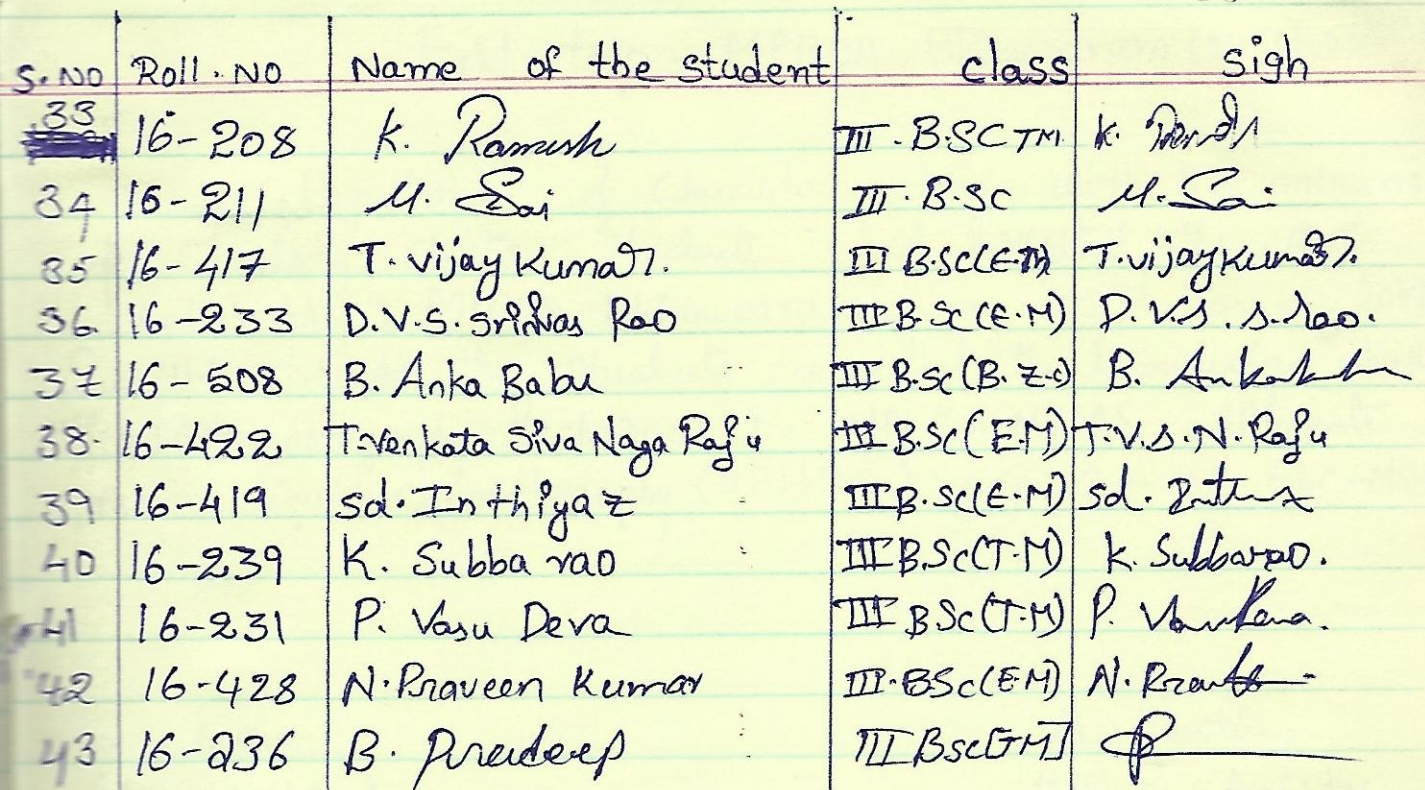 S.NO Roll.NO Name of the student class sigh
33 16-208 K. Ramesh III.B.SC TM K.
34 16-211 M. Sai III.B.SC M.Sai
35 16-417 T.vijay Kumar. III B.SC(E.M) T.vijay Kumar.
36 16-233 D.V.S. Srinivas Rao III B.Sc(E.M) D.V.S.S.rao.
37 16-508 B. Anka Babu III B.Sc(B.Z.C) B.
38. 16-422 T.Venkata Siva Naga Raju III B.Sc(E.M) T.V.S.N.Raju
39 16-419 Sd.Inthiyaz III B.Sc(E.M) Sd.
40 16-239 K. Subba rao III B.Sc(T.M) K. Subbarao.
41 16-231 P. Vasu Deva III B.Sc(T.M) P.
42 16-428 N.Praveen Kumar III.BSc(E.M) N.
43 16-236 B. Pradeep III Bsc[TM]